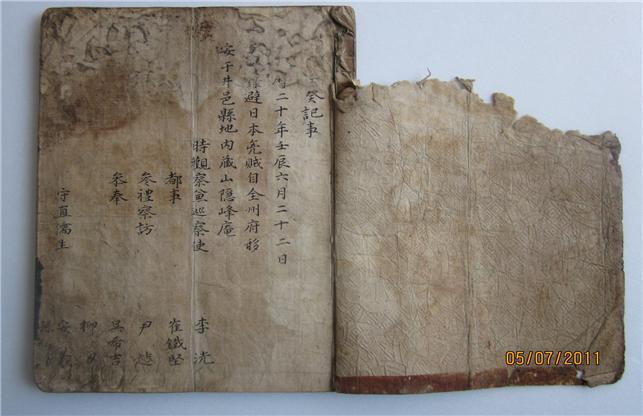 癸記事
二十年壬辰六月二十二日
避日本兇賊自全州府移
安于井邑縣地內藏山隱峰庵
時觀察兼巡察使 李洸
都事 崔鐵堅
參禮察訪 尹
叅奉 吳希吉
柳
守直儒生 安義
孫
05/07/2011